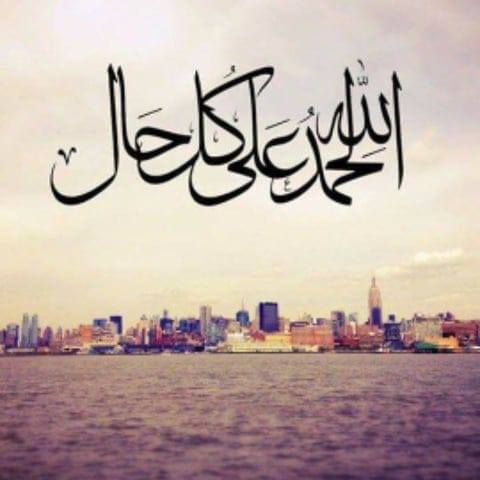 الحمد لله على كل حال